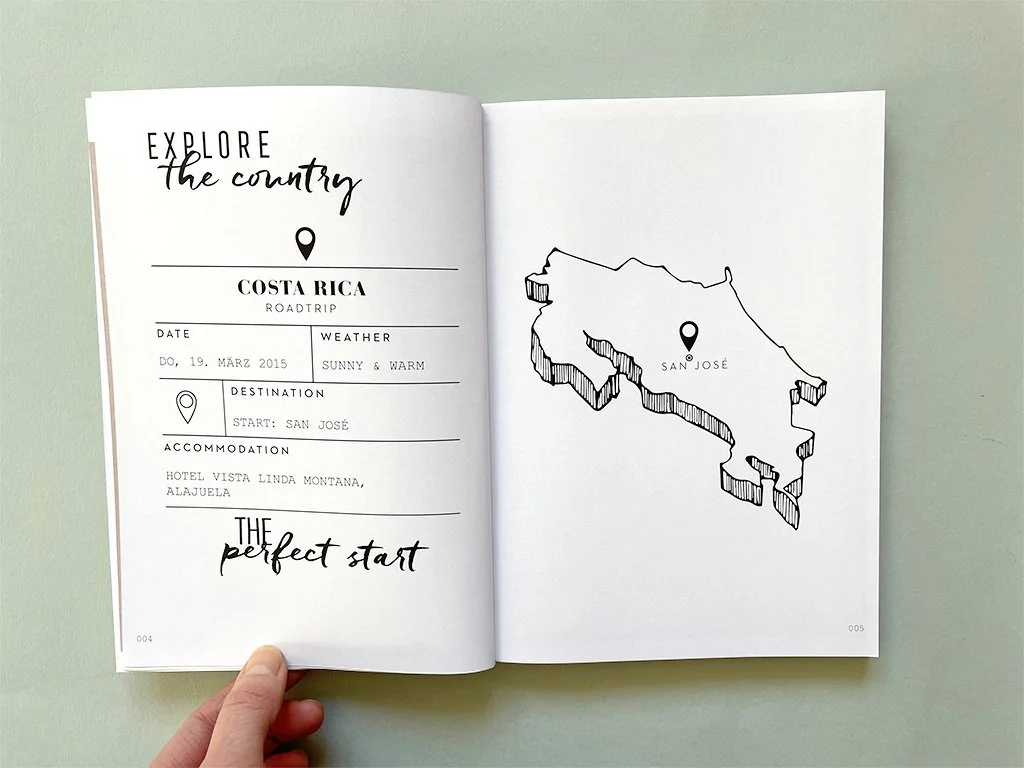 EXPLORE
the country
COSTA RICA
ROADTRIP
DATE
DO, 19. MÄRZ 2015
WEATHER
SUNNY & WARM
DESTINATION
START: SAN JOSÉ
ACCOMMODATION
HOTEL VISTA LINDA MONTANA,
ALAJUELA
THE
perfect start
004
SAN JOSÉ
005